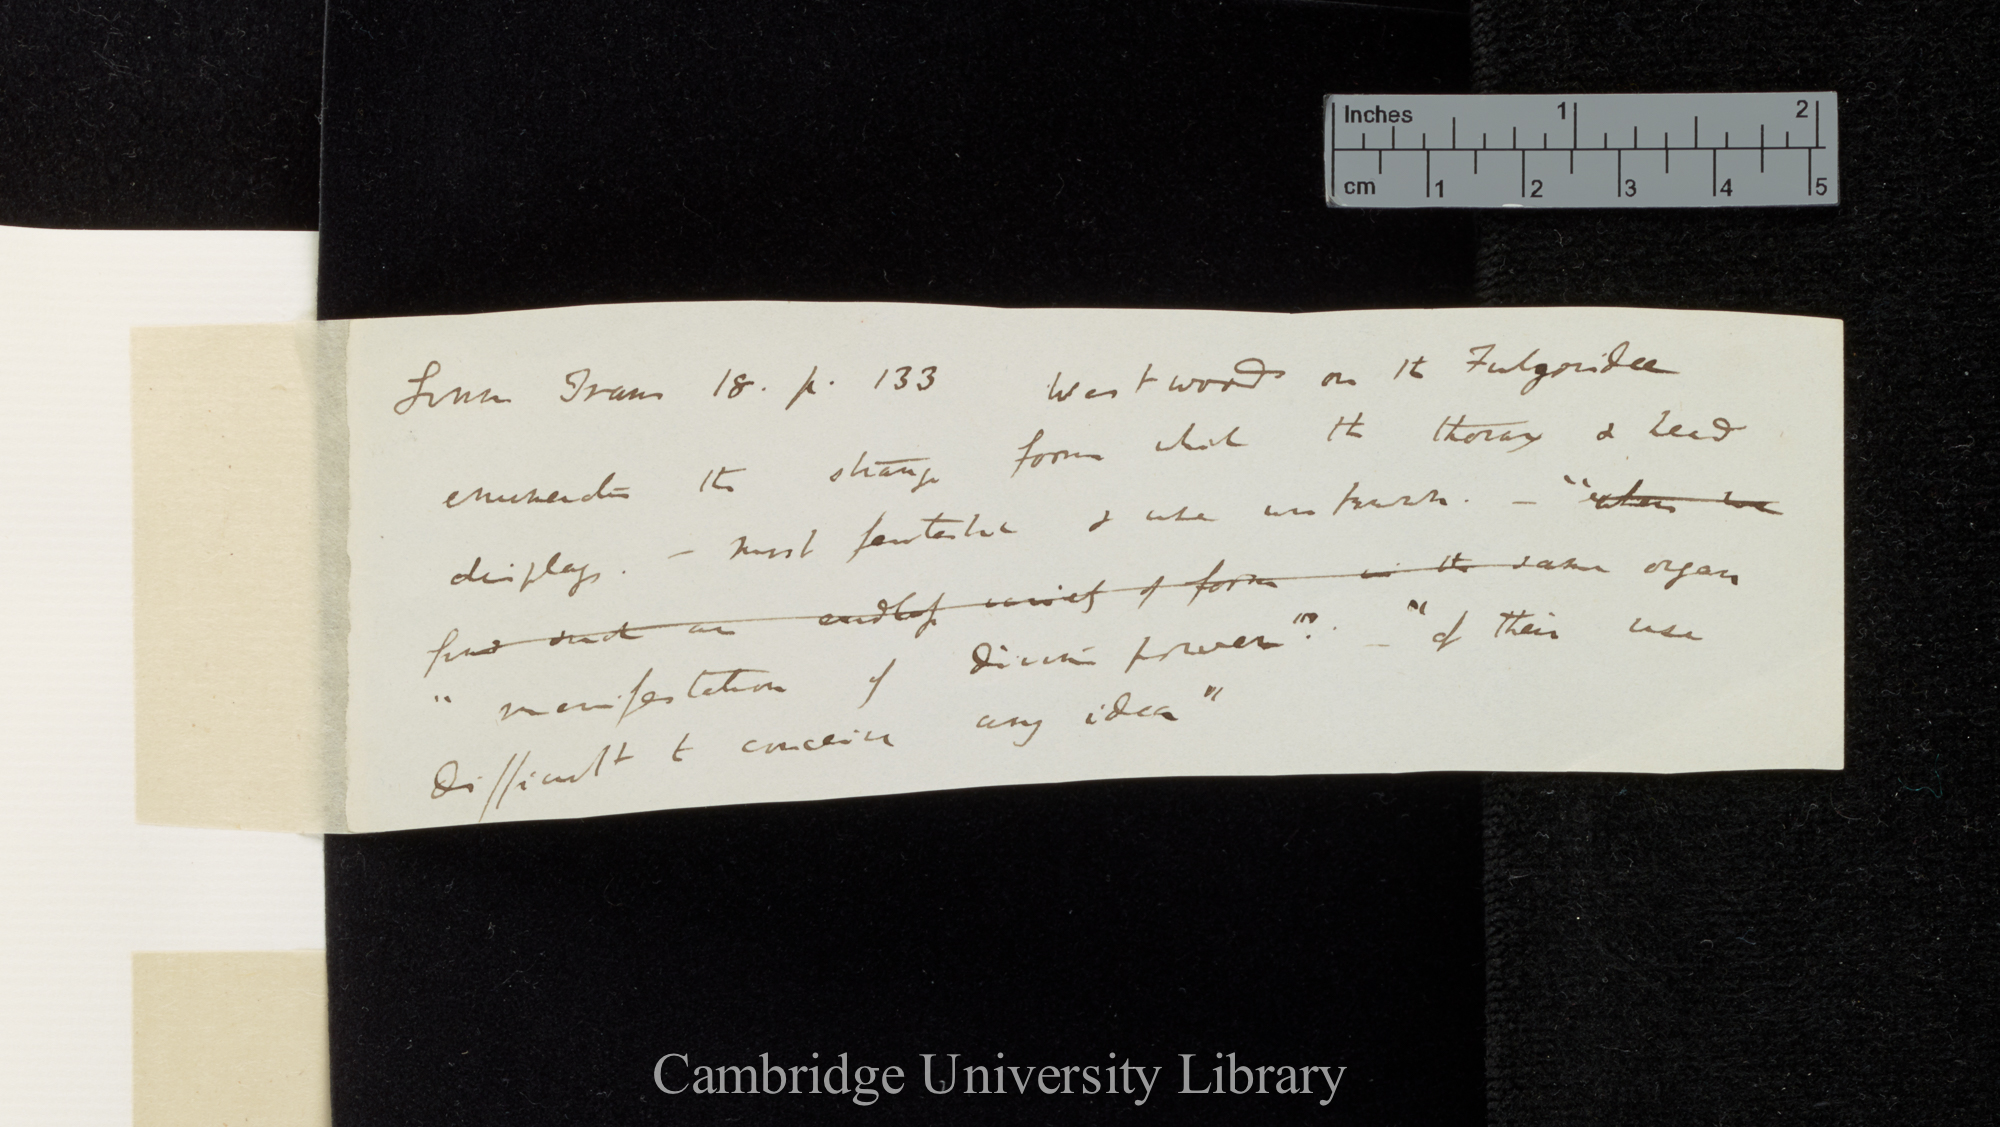 Inches 1 2
cm 1 2 3 4 5
Linn Trans 18. p. 133 Westwood on the Fulgoridae
enumerates the strange forms which the thorax & head
displays. — most fantastic & use unknown. — "when we
find such an endless variety of form in the same organ
" manifestation of divine power"? — "of their use
difficult to conceive any idea"
Cambridge University Library